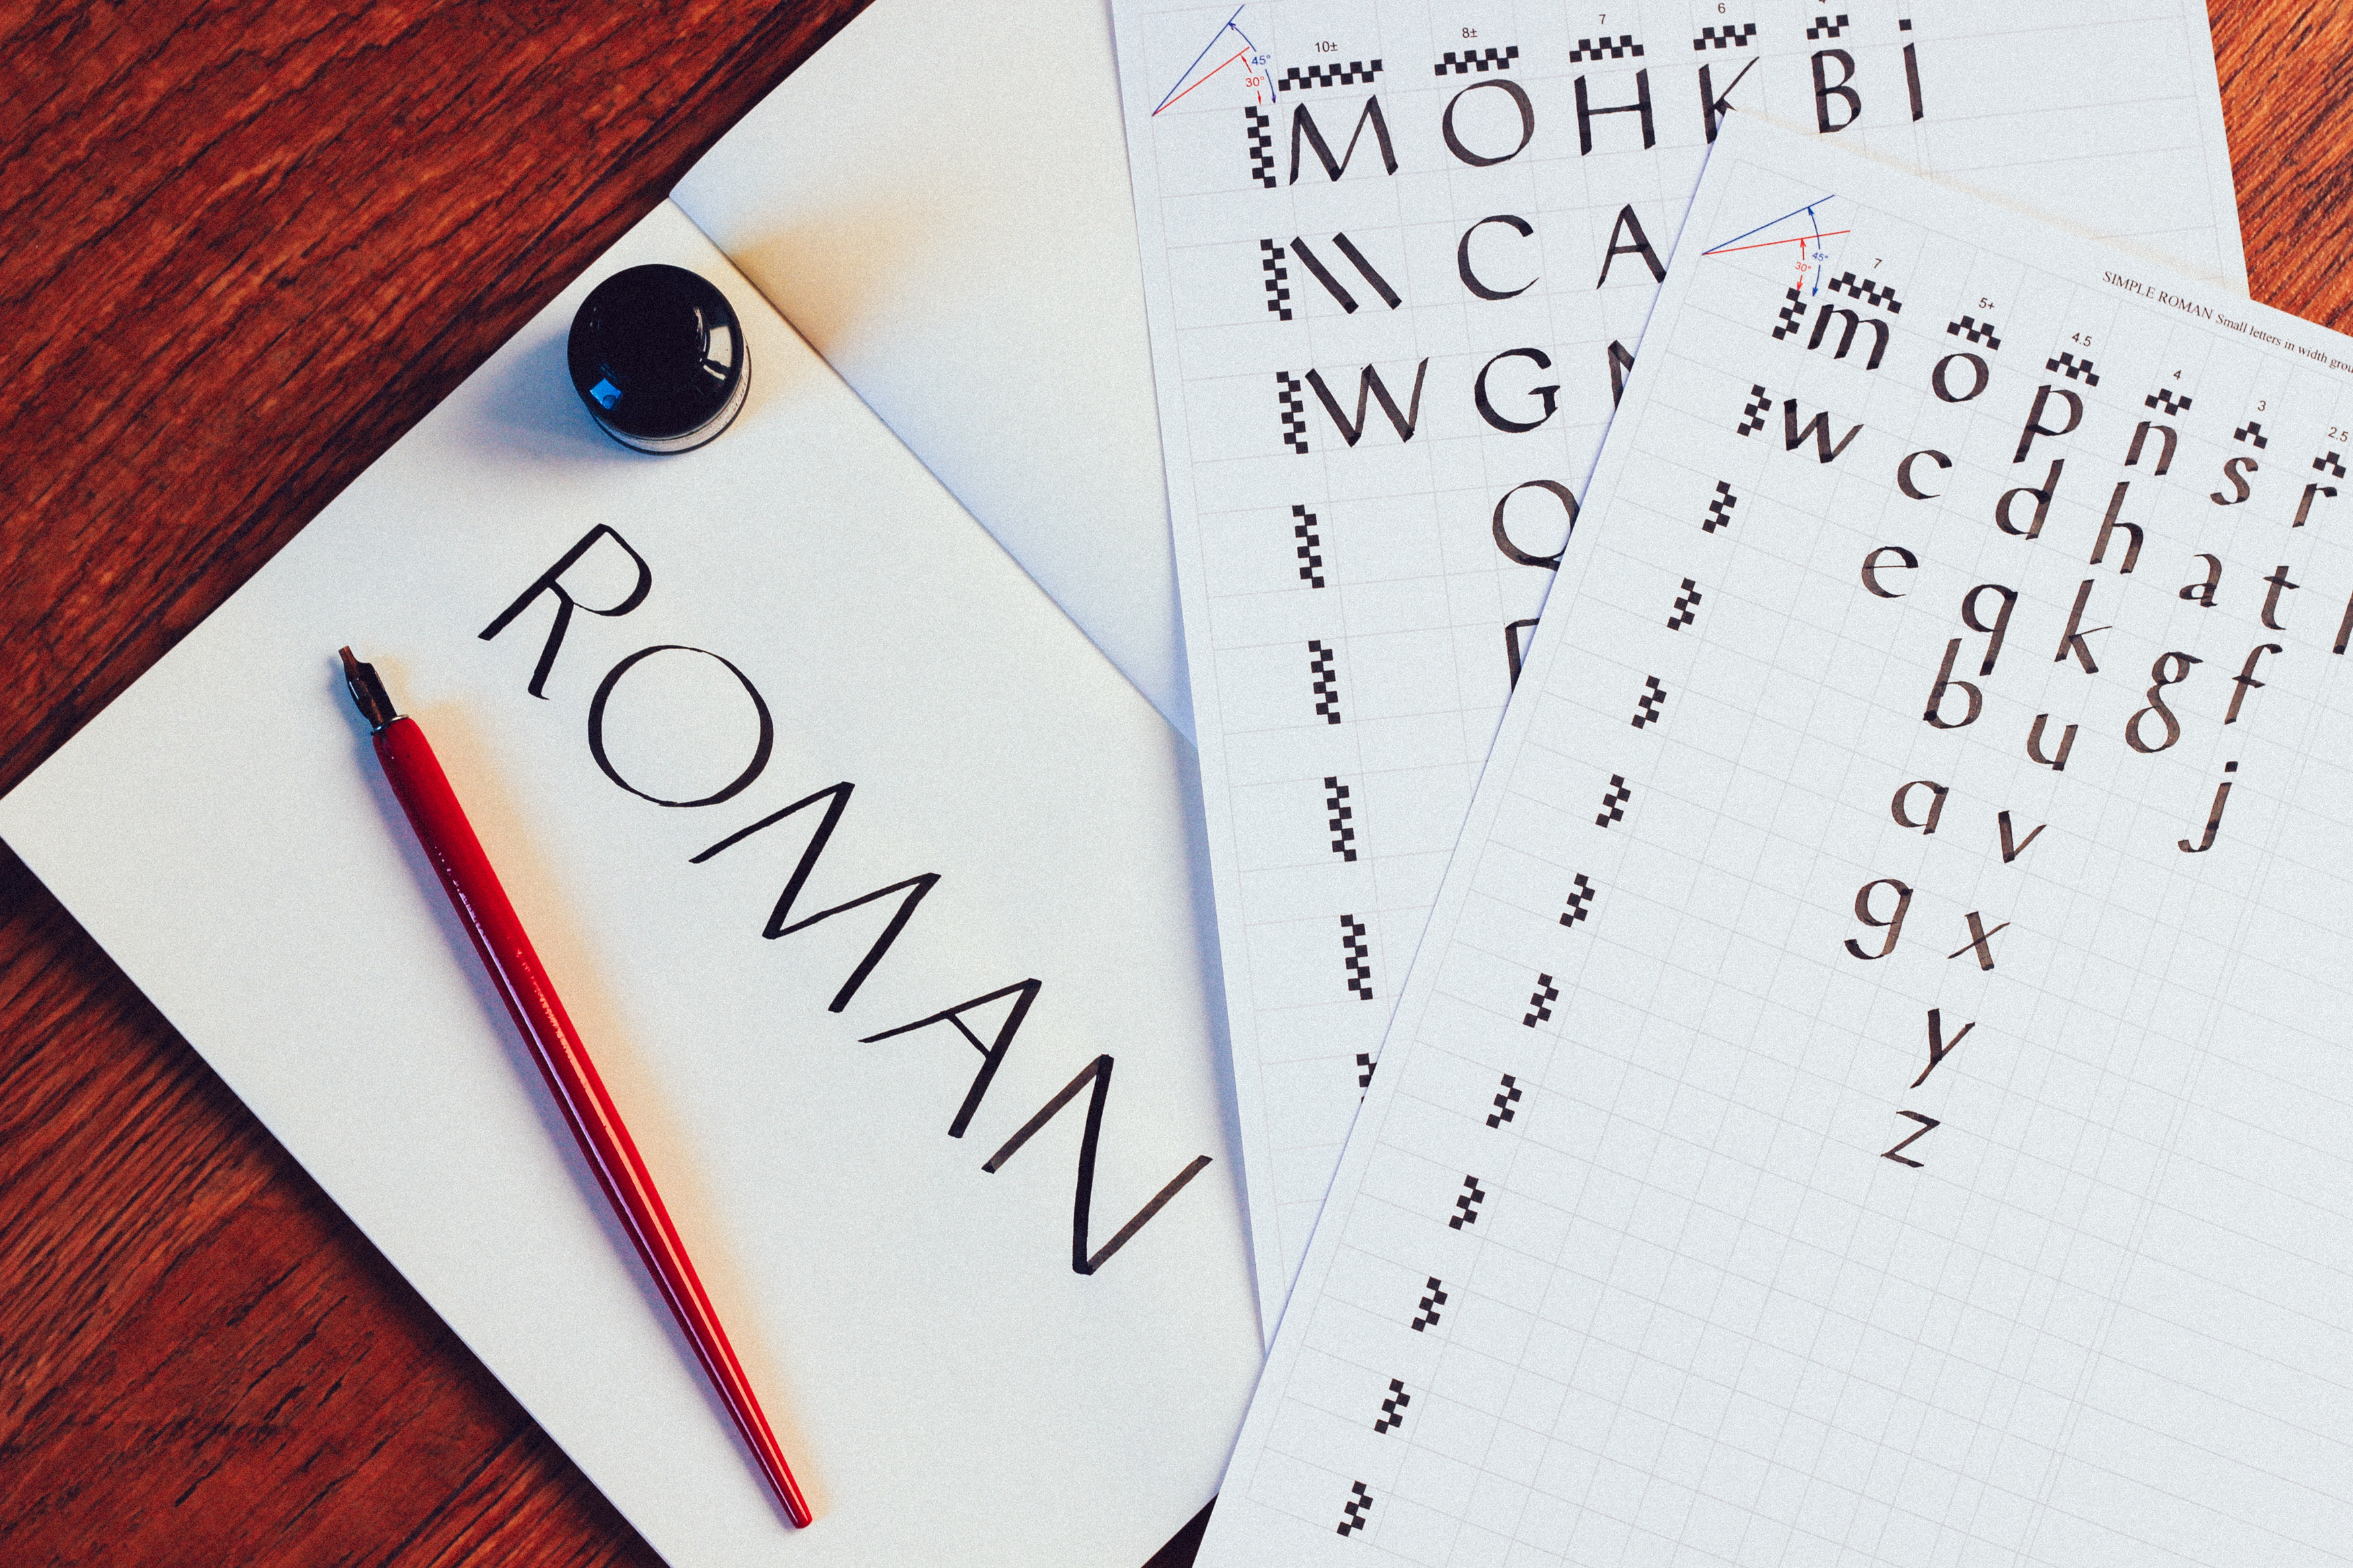 ROMAN
10± 8± 7 6
45°
30°
M O H K B i
\\ C A
W G
Q
SIMPLE ROMAN Small letters in width
45°
30°
7 5+ 4.5 4 3 2.5
m o p n s r
w c d h a t
e q k g f
b u j
a v
g x
y
z